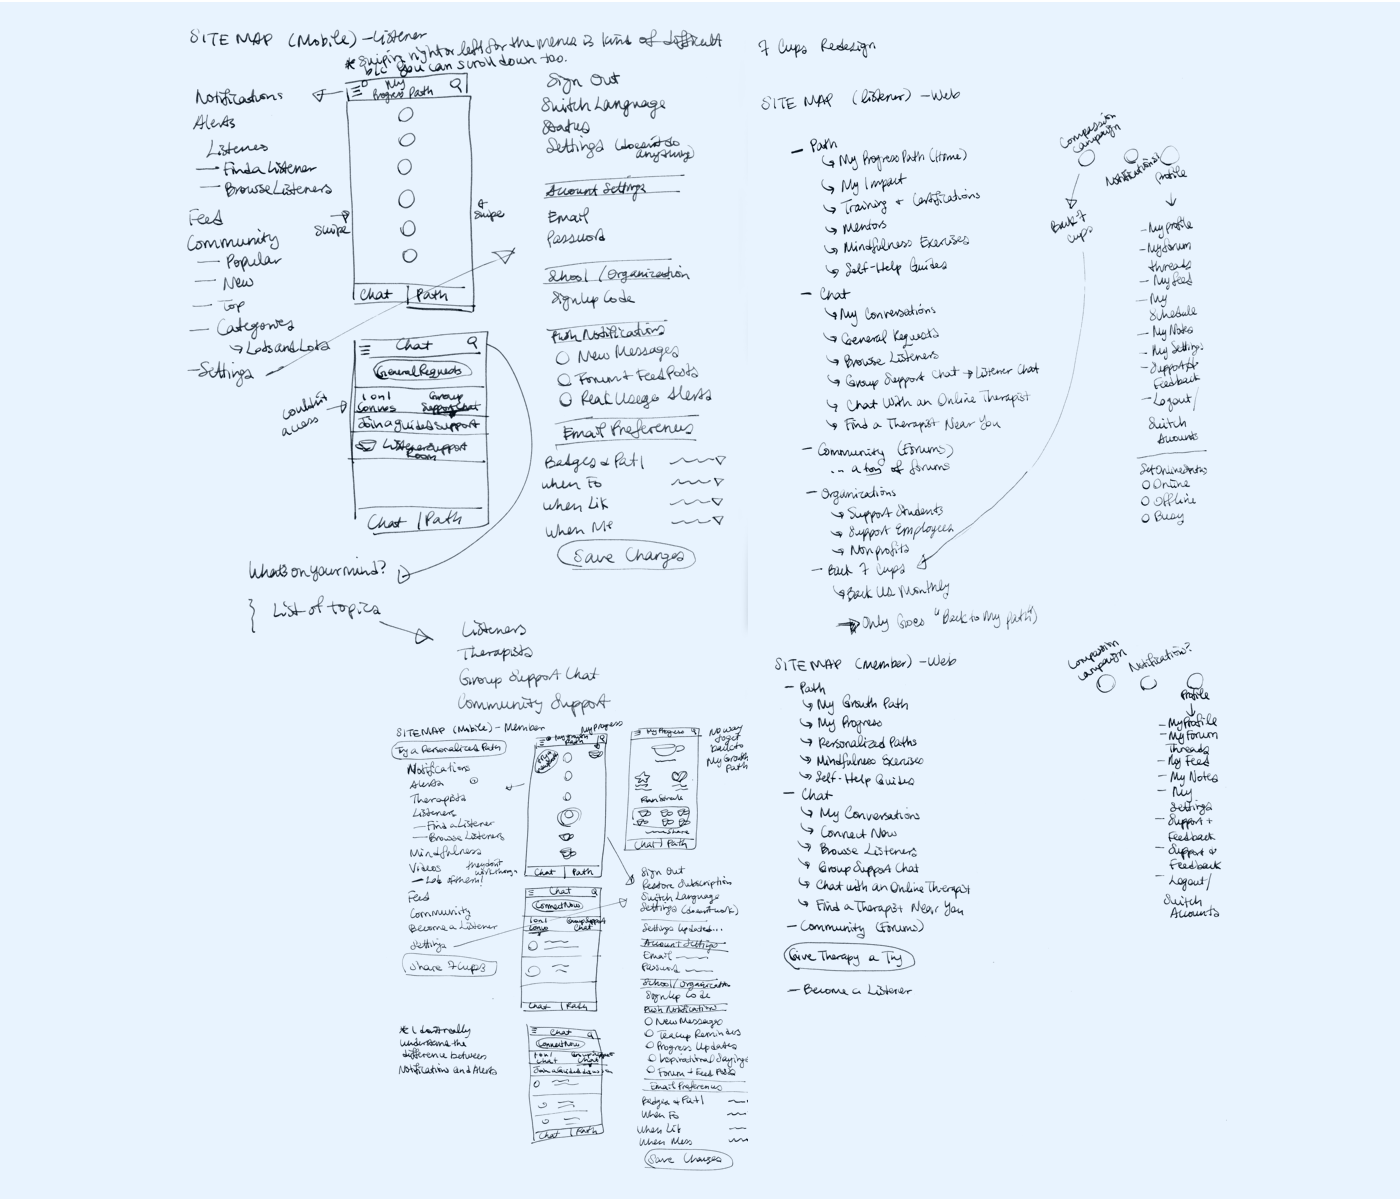 SITE MAP (Mobile) - Listener
* Swipin right or left for the menus is kind of difficult
b/c you can scroll down too.
Notifications
Alerts
Listeners
— Find a Listener
— Browse Listeners
Feed
Community
— Popular
— New
— Top
— Categories
↳ Lots and Lots
- Settings
My
Progress Path
swipe
swipe
Chat | Path
Sign Out
Switch Language
Status
Settings (doesn't do
anything)
Account Settings
Email
Password
School / Organization
Sign Up Code
Push Notifications
○ New Messages
○ Forum + Feed Posts
○ Real Usego Alerts
Email Preferences
Badges & Pat |
When Fo
When Lik
When Me
Save Changes
Chat
General Requests
couldn't
access
1 on 1
Convos
Group
Support Chat
Join a guided support
Listener Support
Room
Chat | Path
What's on your mind?
} List of topics
Listeners
Therapists
Group Support Chat
Community Support
SITEMAP (Mobile) - Member
Try a Personalized Path
Notifications
Alerts
Therapists
Listeners
— Find a Listener
— Browse Listeners
Mindfulness
Videos
they don't
Feed
Community
Become a Listener
Settings
Share 7 Cups
My Progress
Path
Chat | Path
My Progress
Chat | Path
No way
to get
back to
My Growth
Path
Chat
Connect Now
1 on 1
Convo
Group Support
Chat
Chat | Path
Sign Out
Restore Subscription
Switch Language
Settings (doesn't work)
Settings Updated...
Account Settings
Email
Password
School / Organization
Sign Up Code
Push Notification
○ New Messages
○ Teacup Reminders
○ Progress Updates
○ Inspirational Sayings
○ Forum + Feed Posts
Email Preferences
Badges & Pat |
When Fo
When Lik
When Mess
Save Changes
* I don't really
understand the
difference between
Notifications and Alerts
Chat
Connect Now
1 on 1
Chat
Group Support
Chat
Join a Guided
Chat | Path
7 Cups Redesign
SITE MAP (listener) - Web
— Path
↳ My Progress Path (Home)
↳ My Impact
↳ Training + Certifications
↳ Mentors
↳ Mindfulness Exercises
↳ Self-Help Guides
- Chat
↳ My Conversations
↳ General Requests
↳ Browse Listeners
↳ Group Support Chat → Listener Chat
↳ Chat With an Online Therapist
↳ Find a Therapist Near You
- Community (Forums)
... a ton of forums
- Organizations
↳ Support Students
↳ Support Employees
↳ Nonprofits
- Back 7 Cups
↳ Back Us Monthly
→ Only Goes "Back to My Path")
Compassion
campaign
Notifications!
Profile
Back 7
cups
- My profile
- My forum
threads
- My feed
- My
Schedule
- My Notes
- My Settings
- Support &
Feedback
- Logout/
Switch
Accounts
Set Online Status
○ Online
○ Offline
○ Busy
SITE MAP (member) - Web
- Path
↳ My Growth Path
↳ My Progress
↳ Personalized Paths
↳ Mindfulness Exercises
↳ Self-Help Guides
- Chat
↳ My Conversations
↳ Connect Now
↳ Browse Listeners
↳ Group Support Chat
↳ Chat with an Online Therapist
↳ Find a Therapist Near You
- Community (Forums)
Give Therapy a Try
- Become a Listener
Compassion
campaign
Notification?
Profile
- My Profile
- My Forum
Threads
- My Feed
- My Notes
- My
Settings
- Support +
Feedback
- Support &
Feedback
- Logout/
Switch
Accounts